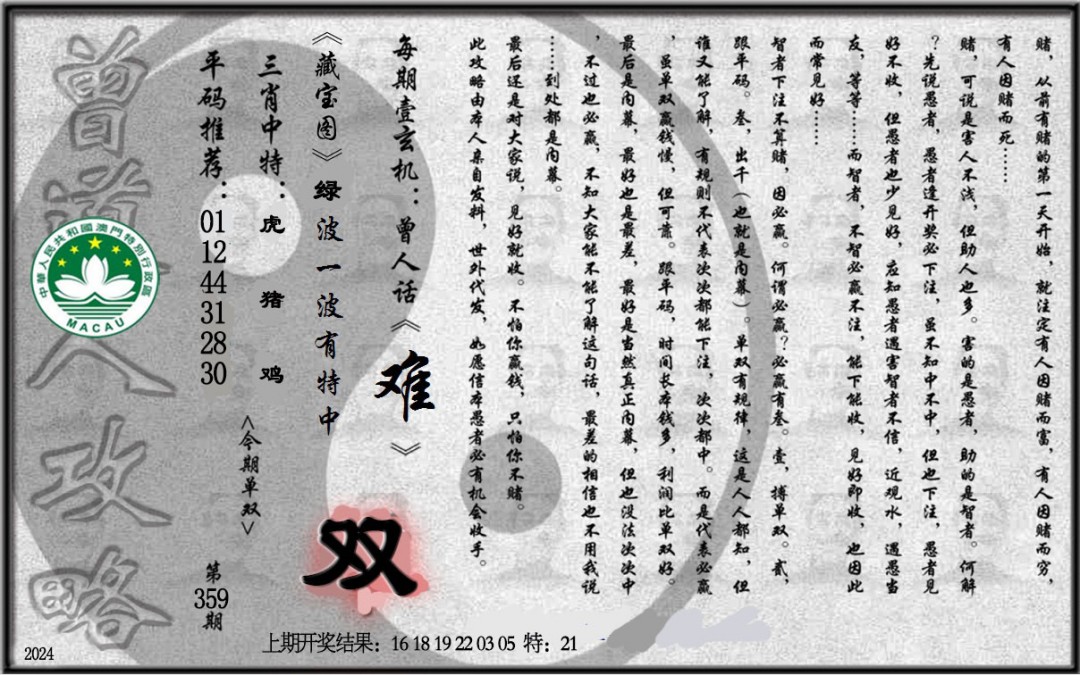 赌，从前有赌的第一天开始，就注定有人因赌而富，有人因赌而穷，
有人因赌而死……
赌，可说是害人不浅，但助人也多。害的是愚者，助的是智者。何解
？先说愚者，愚者逢开奖必下注，虽不知中不中，但也下注，愚者见
好不收，但愚者也少见好，应知愚者遇害智者不信，近观水，遇愚当
友，等等……而智者，不智必赢不注，能下能收，见好即收，也因此
而常见好……
智者下注不算赌，因必赢。何谓必赢？必赢有叁。壹，搏单双。贰，
跟平码。叁，出千（也就是内幕）。单双有规律，这是人人都知，但
谁又能了解，有规则不代表次次都能下注，次次都中。而是代表必赢
，虽单双赢钱慢，但可靠。跟平码，时间长本钱多，利润比单双好。
最后是内幕，最好也是最差，最好是当然真正内幕，但也没法次次中
，不过也必赢，不知大家能不能了解这句话，最差的相信也不用我说
……到处都是内幕。
最后还是对大家说，见好就收。不怕你赢钱，只怕你不赌。
此攻略由本人亲自发料，世外代发，如愿信本愚者必有机会收手。
每期壹玄机：曾人话《难》
《藏宝图》绿波一波有特中
双
三肖中特：虎 猪 鸡
<今期单双>
平码推荐：01 12 44 31 28 30
第359期
曾道人攻略
中華人民共和國澳門特別行政區
MACAU
上期开奖结果：16 18 19 22 03 05 特：21
2024